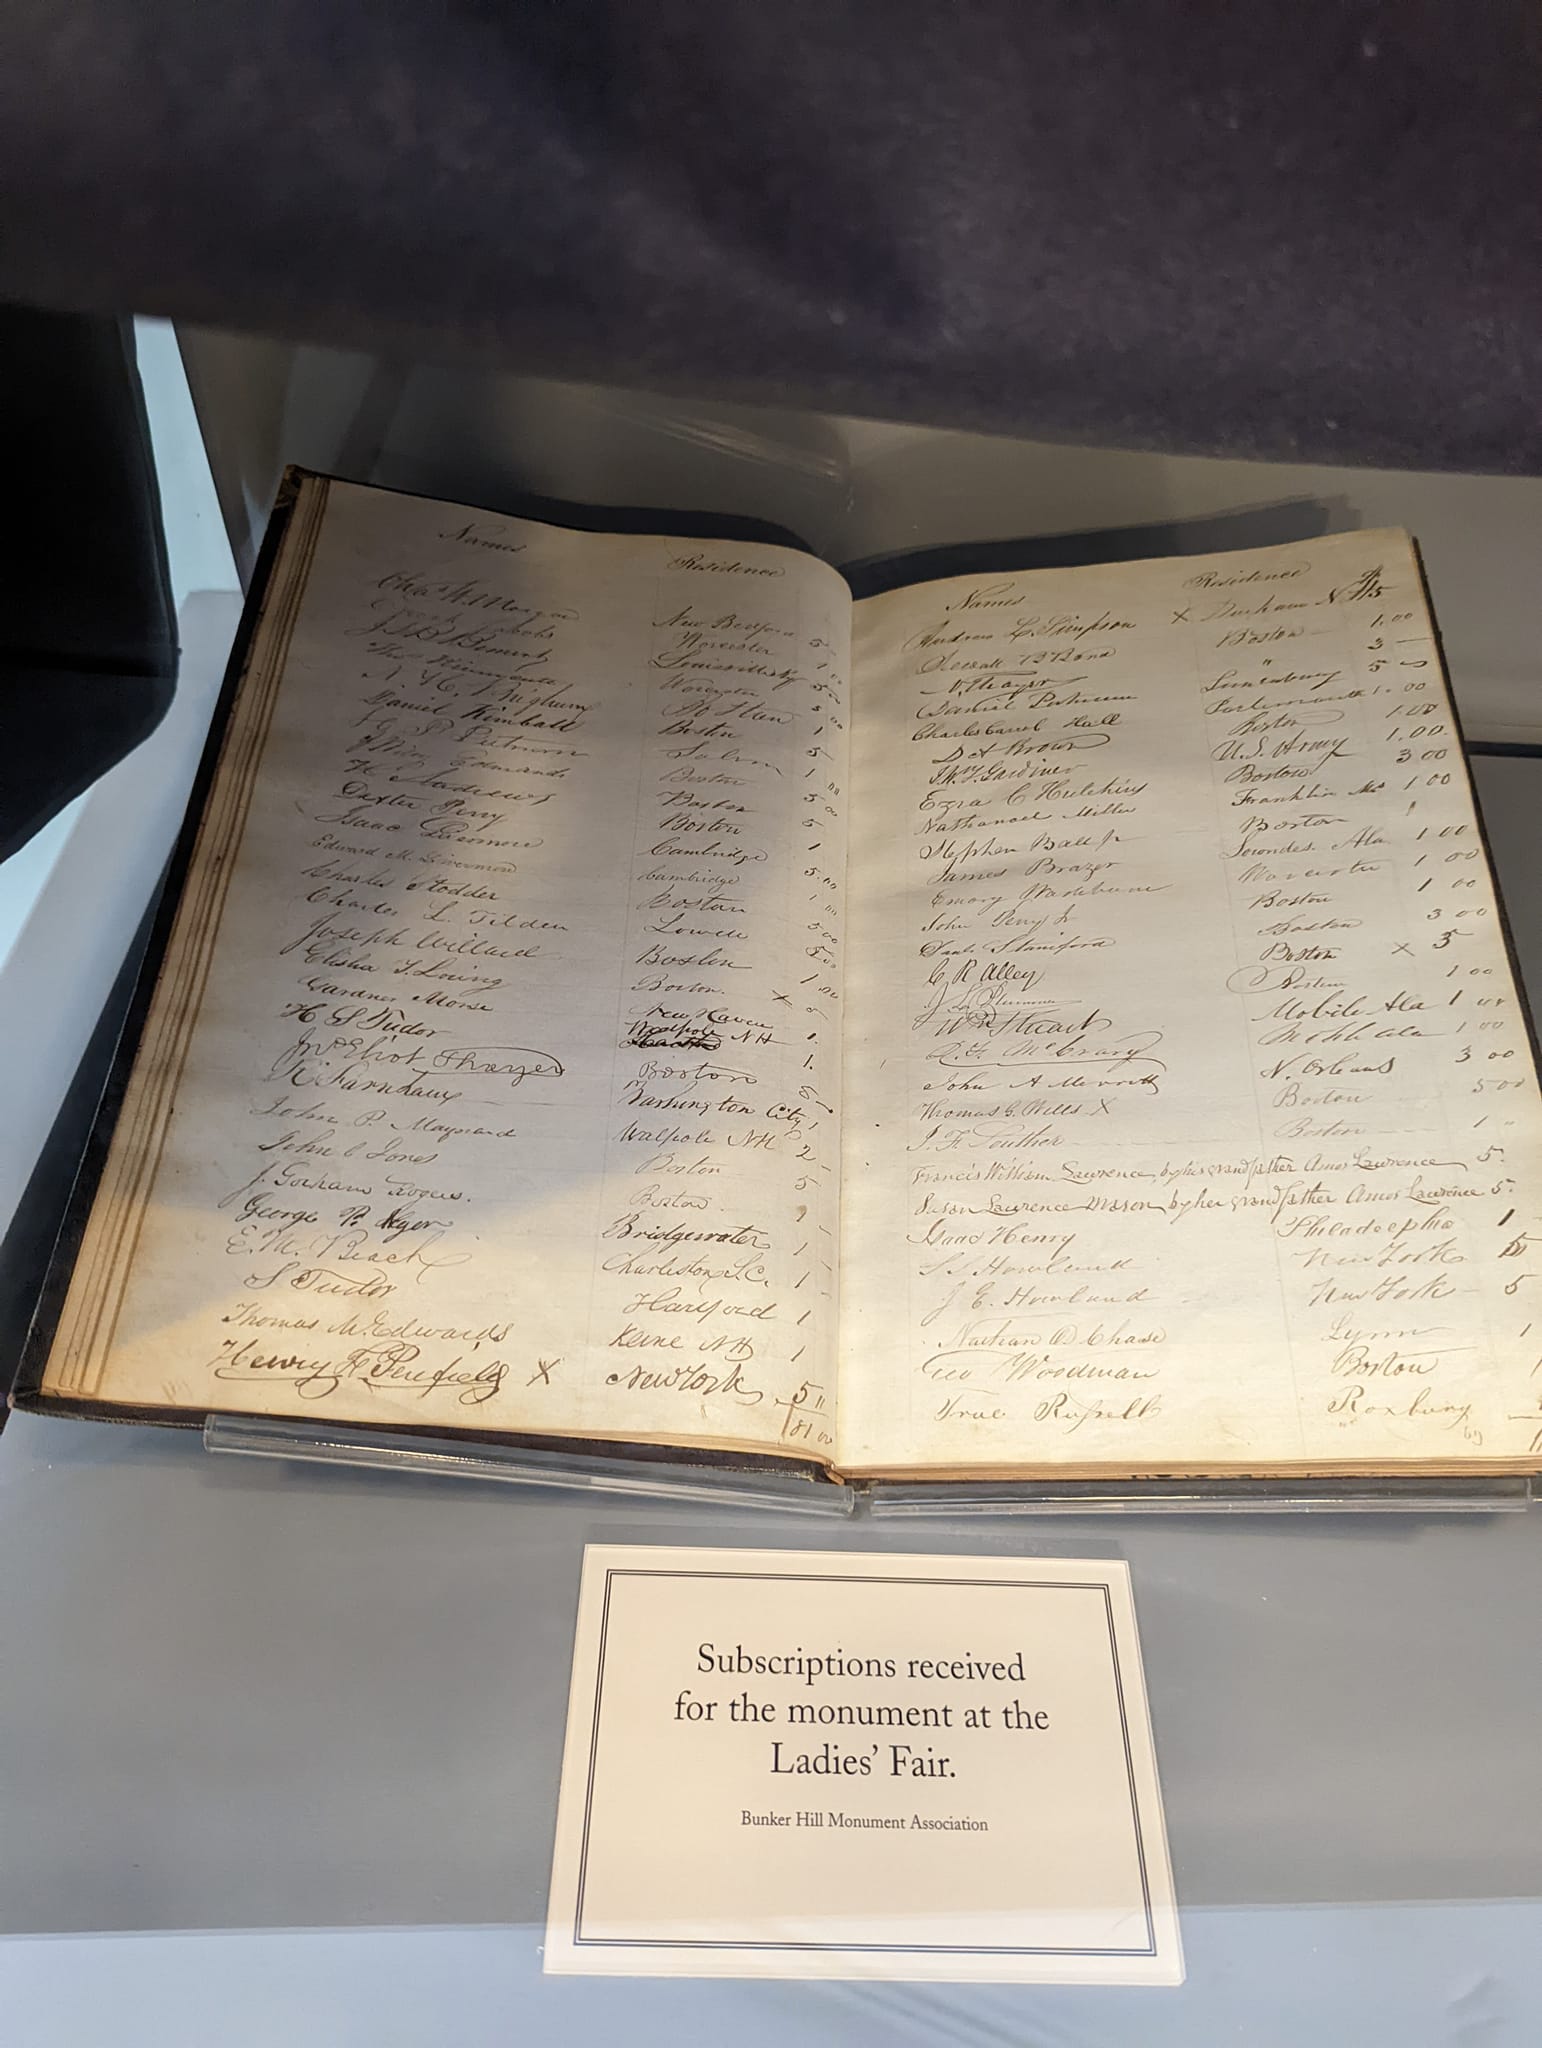 Names Residence
Chas W. Morgan New Bedford 5
Worcester 1
Louisville Ky 5
Worcester 5
1
Daniel Kimball Boston 5
Putnam Salem 1
Edmands Boston 5
Andrews Boston 5
Dexter Perry Boston 1
Isaac Livermore Cambridge 5.00
Edward M. Livermore Cambridge 1
Charles Stodder Boston 5 00
Charles L. Tilden Lowell 5.00
Joseph Willard Boston 1.00
Elisha T. Loring Boston. X 5
Gardner Morse New Haven 1.
H S Tudor Walpole NH 1.
Jno Eliot Thayer Boston 5
R Farnham Washington City 1
John P. Maynard Walpole NH 2
John C Jones Boston 5
J. Gorham Rogers. Boston.
George P. Bridgewater 1
E. M. Beach Charleston S.C. 1
S Tudor Hartford 1
Thomas M. Edwards Keene NH 1
Henry F. Penfield X New York 5 "
81 00
Names Residence $
Andrew L. Simpson X Durham N.H. 5
Sewall B Bond Boston 1.00
N. Thayer " 3
Daniel Putnam Lunenburg 5
Charles Carrol Hall Portsmouth 1.00
Brown Boston 1.00
Gardiner U.S. Army 1.00
Ezra C Hutchins Boston 3 00
Nathanael Miller Franklin Ms 1 00
Stephen Ball Jr Boston 1
James Brazer Lowndes. Ala 1 00
Emory Washburn Worcester 1 00
John Perry Jr Boston 1 00
Staniford Boston 3 00
C. R Alley Boston X 5
Boston 1 00
Wm Stuart Mobile Ala 1
McCrary Ala 1 00
John A Merritt N. Orleans 3 00
Thomas G. Wells X Boston 5 00
Souther Boston 1
Francis William Lawrence, by his grandfather Amos Lawrence 5.
Susan Lawrence Mason, by her grandfather Amos Lawrence 5.
Isaac Henry Philadelphia 1
S S Howland New York
J E. Howland New York 5
Nathan D. Chase Lynn 1
Geo Woodman Boston 1
True Russell Roxbury
Subscriptions received
for the monument at the
Ladies’ Fair.
Bunker Hill Monument Association